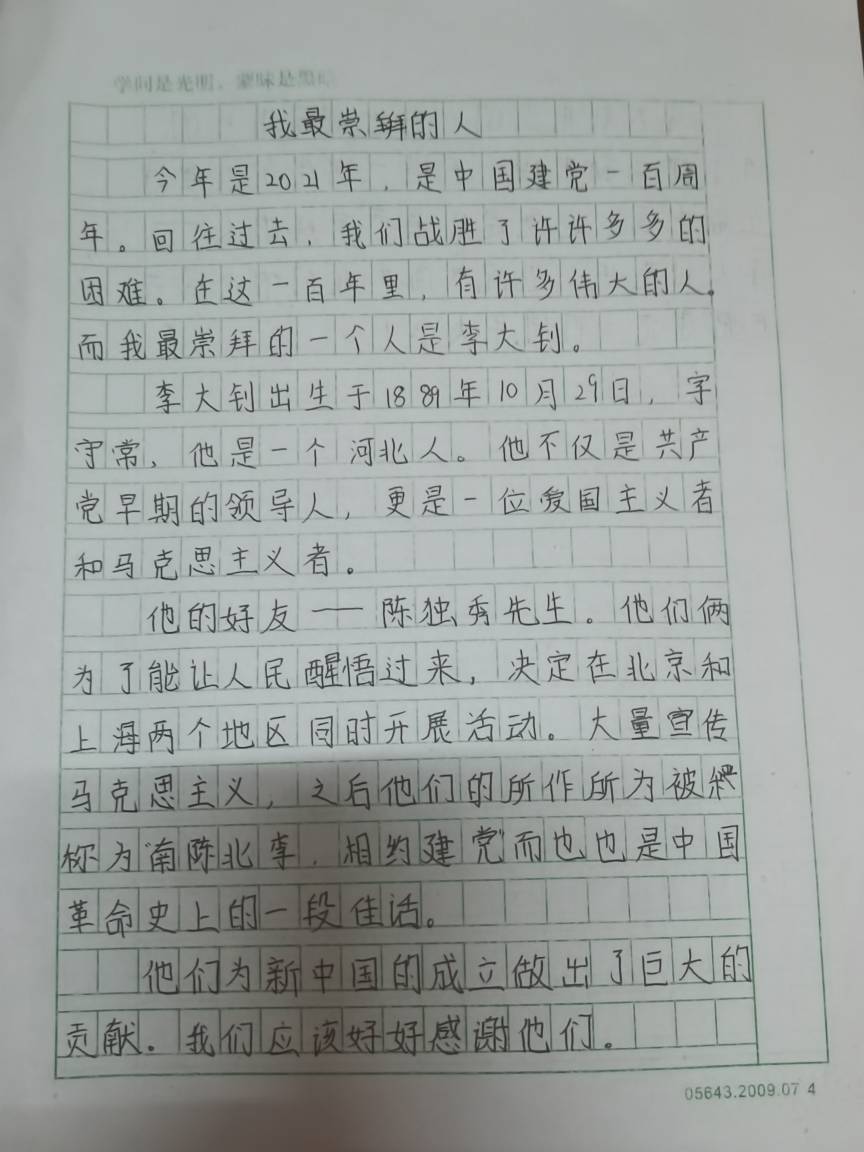 学问是光明，蒙昧是黑暗
我最崇拜的人
今年是2021年，是中国建党一百周
年。回往过去，我们战胜了许许多多的
困难。在这一百年里，有许多伟大的人。
而我最崇拜的一个人是李大钊。
李大钊出生于1889年10月29日，字
守常，他是一个河北人。他不仅是共产
党早期的领导人，更是一位爱国主义者
和马克思主义者。
他的好友——陈独秀先生。他们俩
为了能让人民醒悟过来，决定在北京和
上海两个地区同时开展活动。大量宣传
马克思主义，之后他们的所作所为被
称为"南陈北李，相约建党"而也也是中国
革命史上的一段佳话。
他们为新中国的成立做出了巨大的
贡献。我们应该好好感谢他们。
05643.2009.07 4